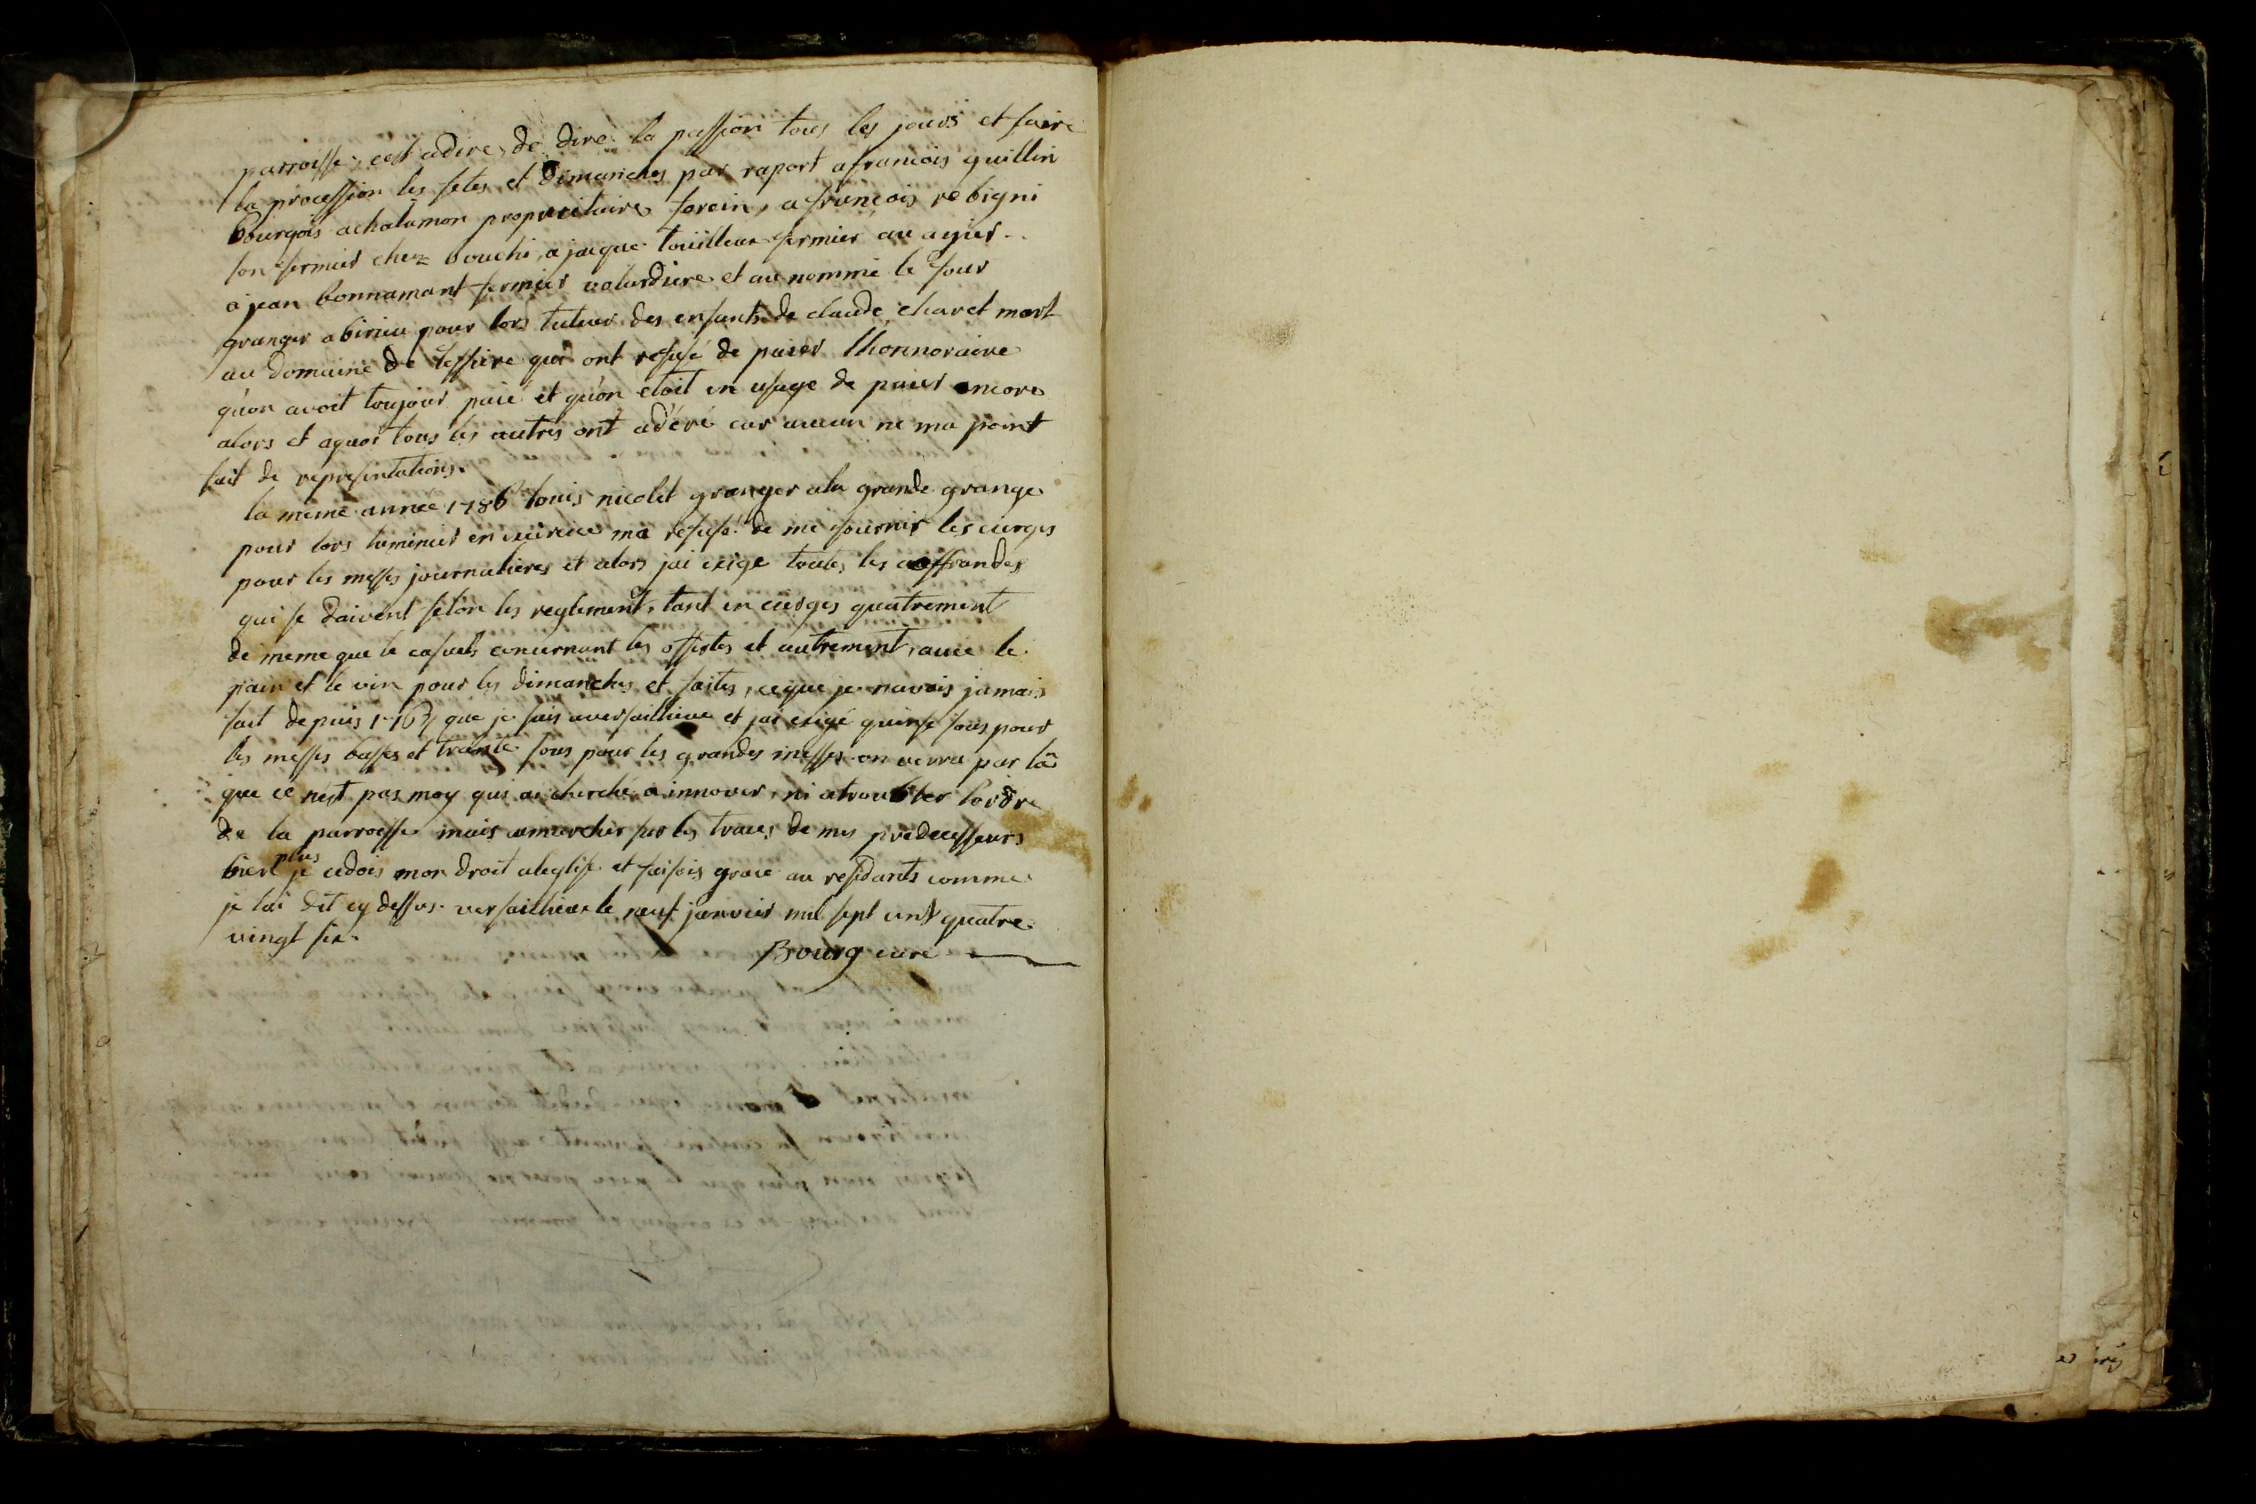 parroisse, cest adire, de dire la passion tous les jours et faire
la procession les fetes et dimanches par raport a francois guillin
bourgois achalamon proprietaire forein, a francois rebigni
son fermier chez bouchi, a jacque touilleux fermier au agier
a jean bonnamant fermier valardiere et au nommé le four
granger a birieu pour lors tuteur des enfants de claude charet mort
au domaine de tessiere qui ont refusé de paier lhonnoraire
quon avoit toujour paié et quon etoit en usage de paier encore
alors et aquoi tous les autres ont adéré car aucun ne ma point
fait de representations.
la meme année 1786 louis nicolet granger ala grande grange
pour lors luminier en exercice ma refusé de me fournir les cierges
pour les messes journalieres et alors jai exige toutes les offrandes
qui se doivent selon les reglement, tant en cierges quatrement
de meme que le casuels concernant les offertes et autrement, avec le
pain et le vin pour les dimanches et faites, ceque je navois jamais
fait depuis 176 que je suis aversaillieux et jai exigé quinse sous pour
les messes basses et trante sous pour les grandes messes on verra par là
que ce nest pas moy qui ai cherché a innover, ni atroubler lordre
de la parroisse mais amarcher sur les traces de mes predecesseurs
bien plus je cedois mon droit aleglise et faisois grace au residants comme
je lai dit cy dessus. versaillieux le neuf janvier mil sept cent quatre
vingt six.
Bourg curé